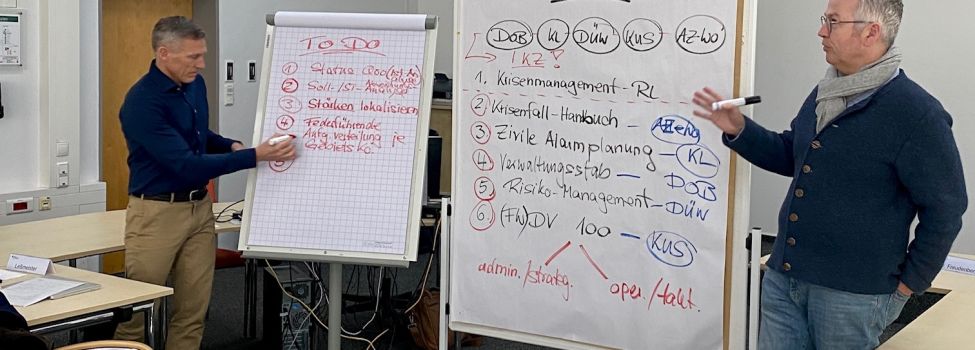 To Do
① Status Quo (Ist-Analyse
②
③ Stärken lokalisieren
④ Federführende
Aufg.verteilung je
Gebietskö.
⑤
Leißmeister
DÜB KL DÜW KUS AZ-WO
! KZ !
1. Krisenmanagement-RL
② Krisenfall-Handbuch -
③ Zivile Alarmplanung - KL
④ Verwaltungsstab - DÜB
⑤ Risiko-Management - DÜW
⑥ (FW)DV 100 - KUS
admin./strateg. oper./takt.